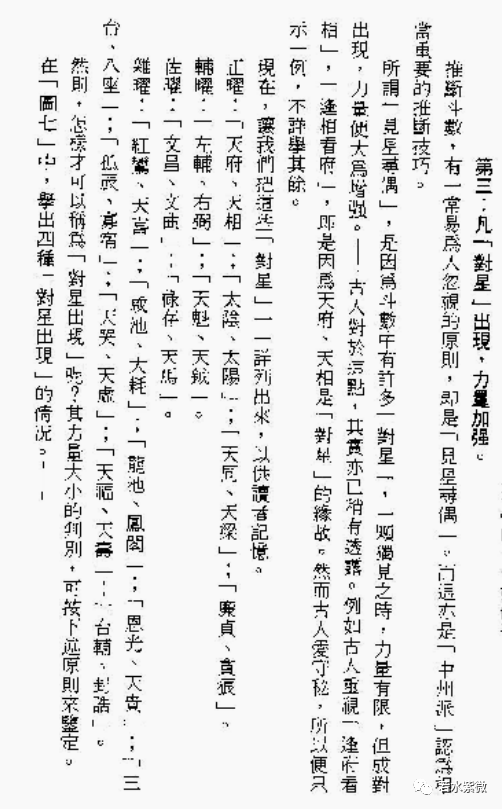 第三：凡「對星」出現，力量加强。
推斷斗數，有一常易爲人忽視的原則，即是「見星尋偶」。而這亦是「中州派」認爲相
當重要的推斷技巧。
所謂「見星尋偶」，是因爲斗數中有許多「對星」，一顆獨見之時，力量有限，但成對
出現，力量便大爲增强。——古人對於這點，其實亦已稍有透露。例如古人重視「逢府看
相」，「逢相看府」，即是因爲天府、天相是「對星」的緣故。然而古人愛守秘，所以便只
示一例，不詳舉其餘。
現在，讓我們把這些「對星」一一詳列出來，以供讀者記憶。
正曜：「天府、天相」；「太陰、太陽」；「天同、天梁」；「廉貞、貪狼」。
輔曜：「左輔、右弼」；「天魁、天鉞」。
佐曜：「文昌、文曲」；「祿存、天馬」。
雜曜：「紅鸞、天喜」；「咸池、大耗」；「龍池、鳳閣」；「恩光、天貴」；「三
台、八座」；「孤辰、寡宿」；「天哭、天虛」；「天福、天壽」；「台輔、封誥」。
然則，怎樣才可以稱爲「對星出現」呢？其力量大小的判別，可按下述原則來鑒定。
在「圖七」中，舉出四種「對星出現」的情況。——
若水紫微